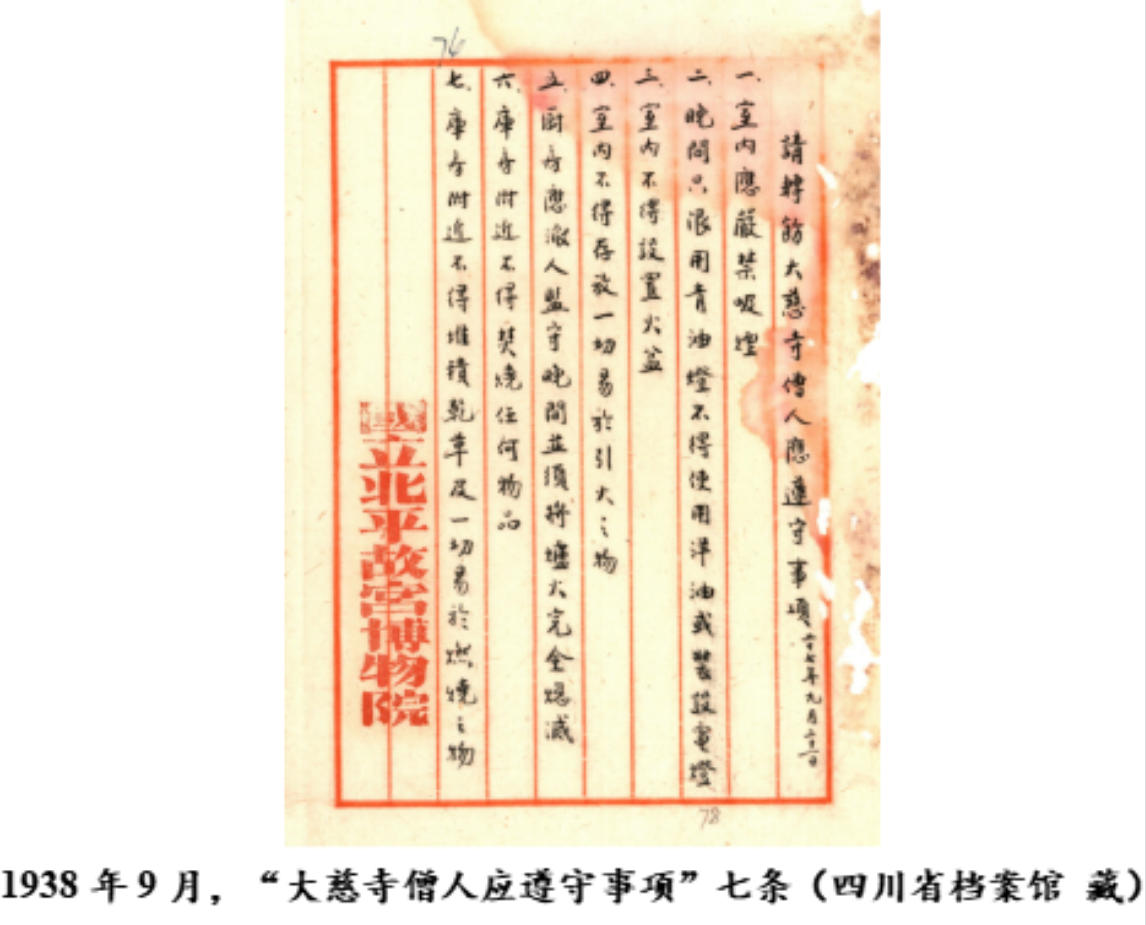 76
請轉飭大慈寺僧人應遵守事項 廿七年九月二十二日
一、室内應嚴禁吸煙
二、晚間只限用青油燈不得使用洋油或裝設電燈
三、室内不得設置火盆
四、室内不得存放一切易於引火之物
五、厨房應派人監守晚間並須將爐火完全熄滅
六、庫房附近不得焚燒任何物品
七、庫房附近不得堆積乾草及一切易於燃燒之物
國立北平故宫博物院
78
1938 年 9 月，“大慈寺僧人应遵守事项”七条（四川省档案馆 藏）